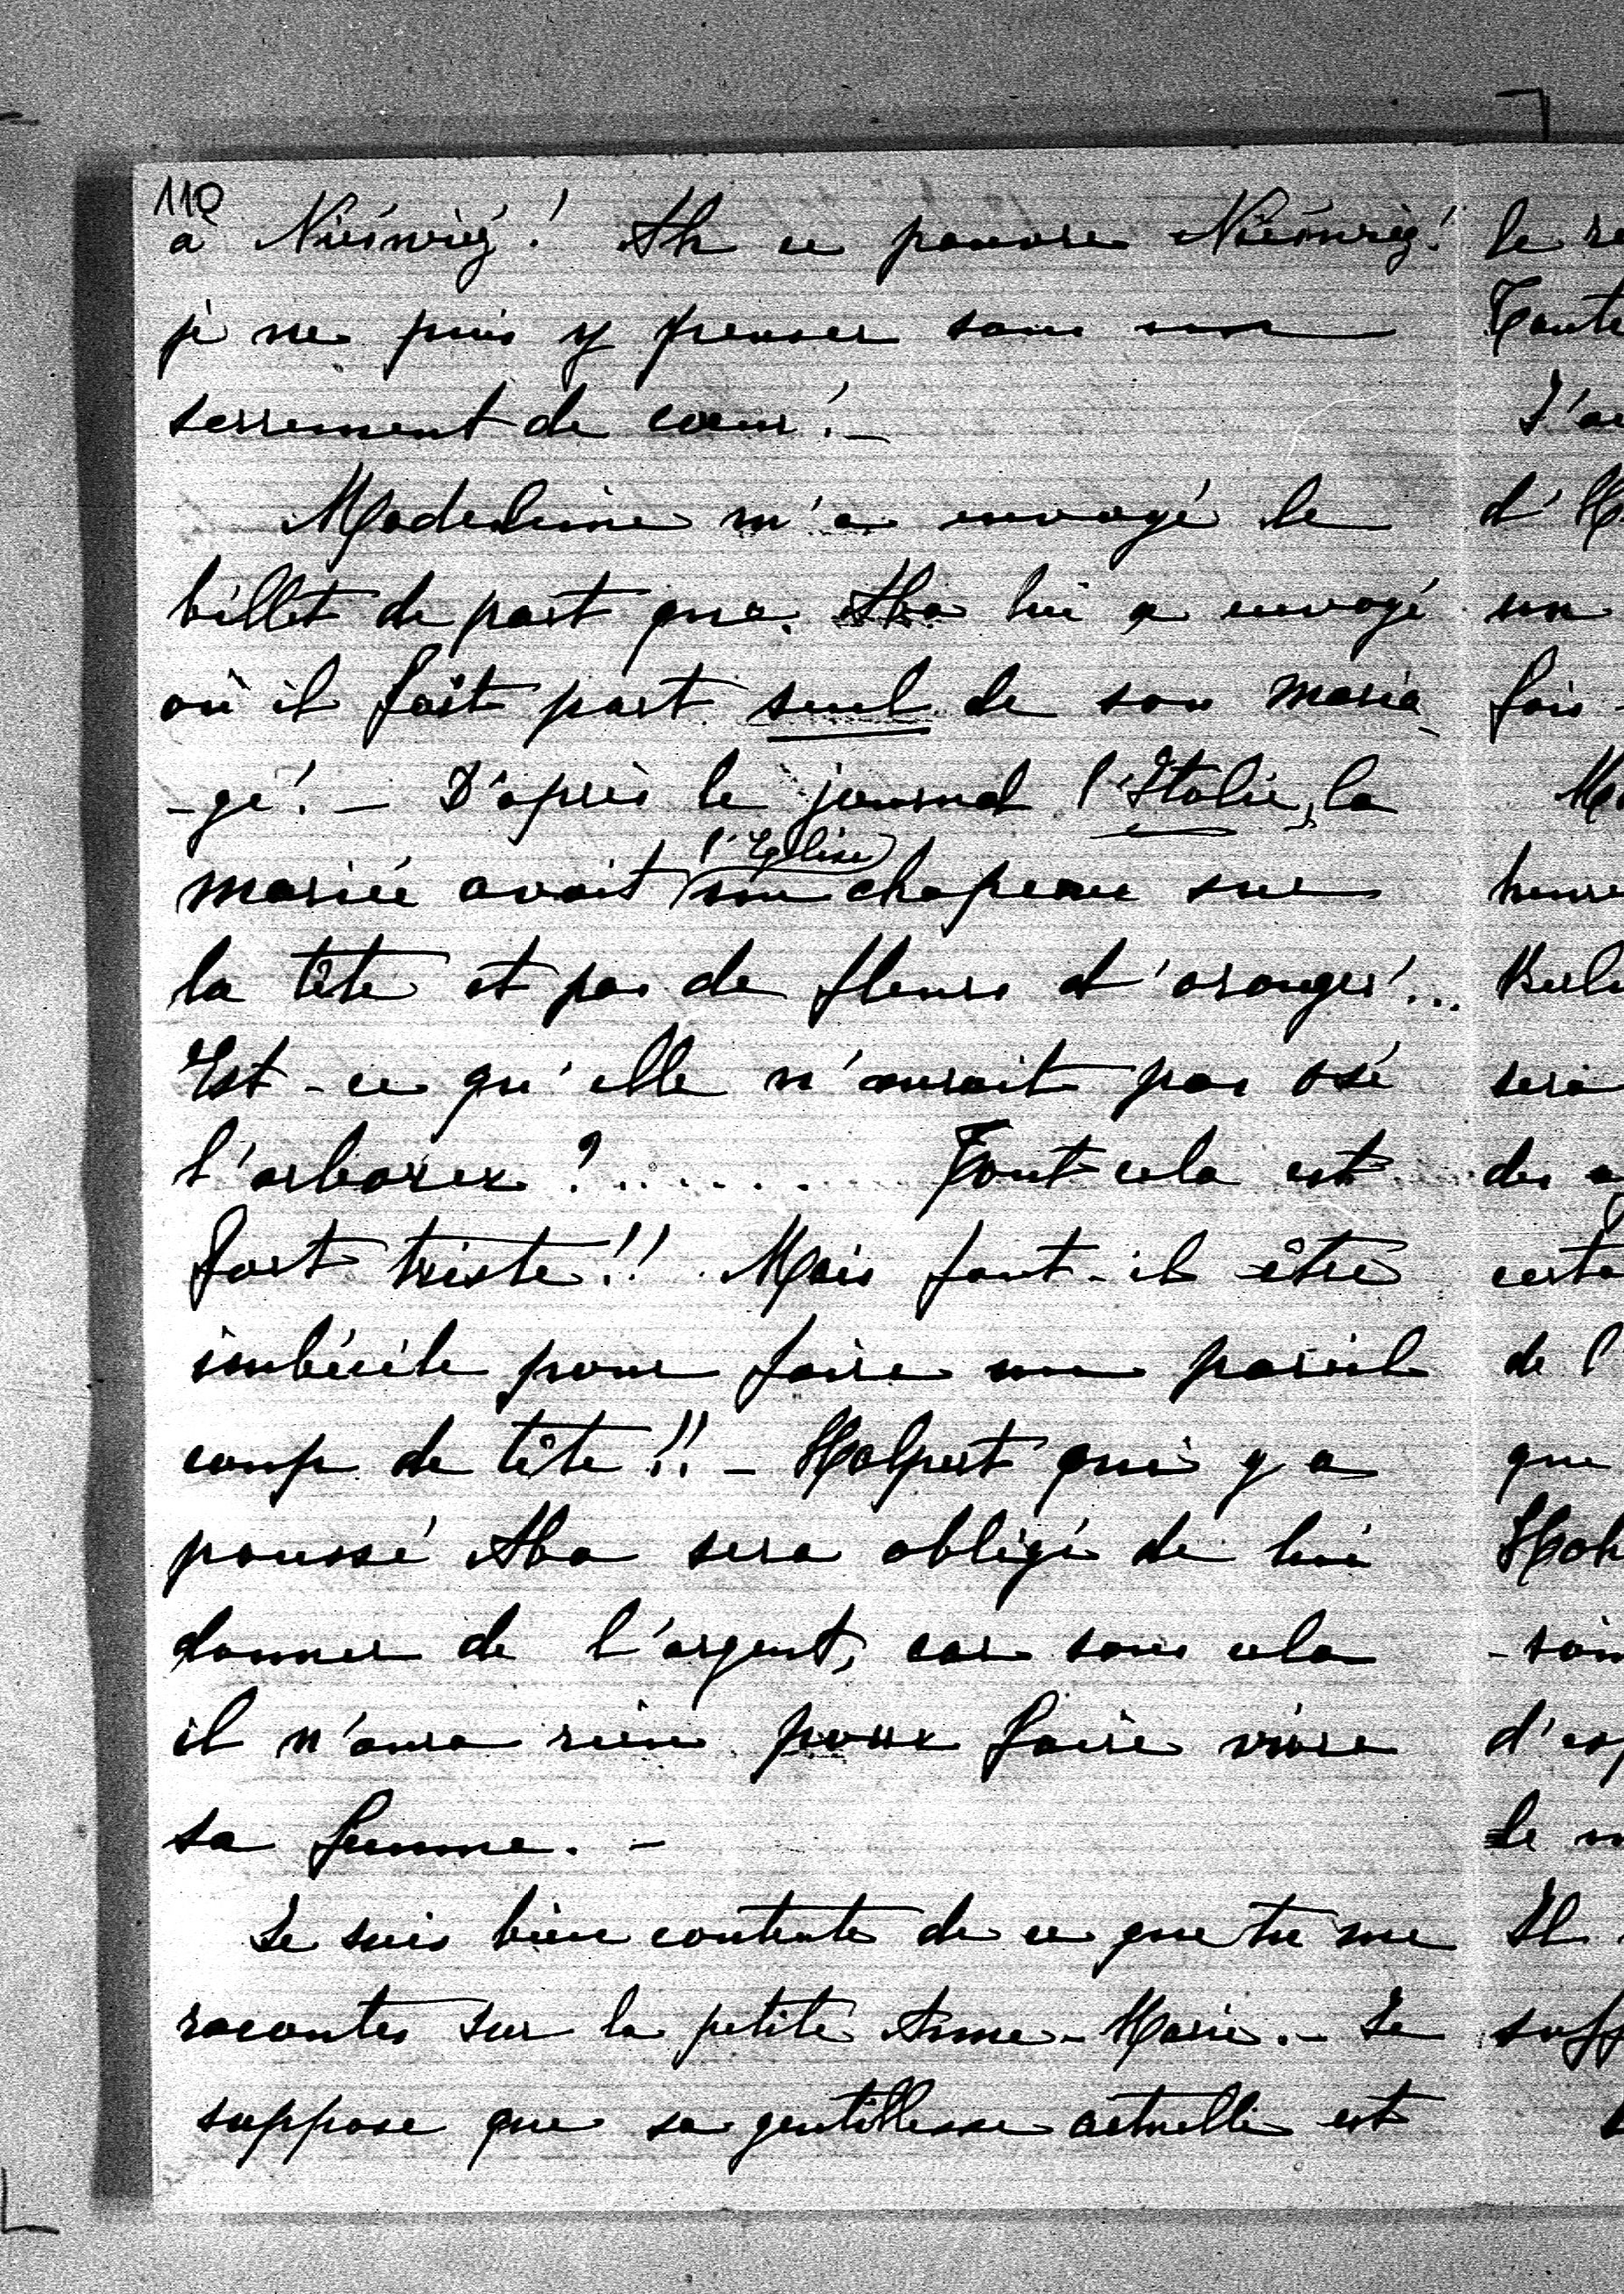 110
à Nieśwież! Ah ce pauvre Nieśwież!
je ne puis y penser sans un
serrement de cœur! —
Madeleine m'a envoyé le
billet de part que Aba lui a envoyé
où il fait part seul de son maria
-ge! — D'après le journal l'Italie, la
l'Eglise
mariée avait un chapeau sur
la tête et pas de fleurs d'oranger!...
Est-ce qu'elle n'aurait pas osé
l'arborer ?....... Tout cela est
fort triste!! Mais faut-il être
imbécile pour faire un pareil
coup de tête!! — Halpert qui y a
poussé Aba sera obligé de lui
donner de l'argent, car sans cela
il n'aura rien pour faire vivre
sa femme. —
Je suis bien contente de ce que tu me
racontes sur la petite Anne-Marie. — Je
suppose que sa gentillesse actuelle est
le
Tante
J'ai
d'
un
fois
sera
des
de l'
que
Il